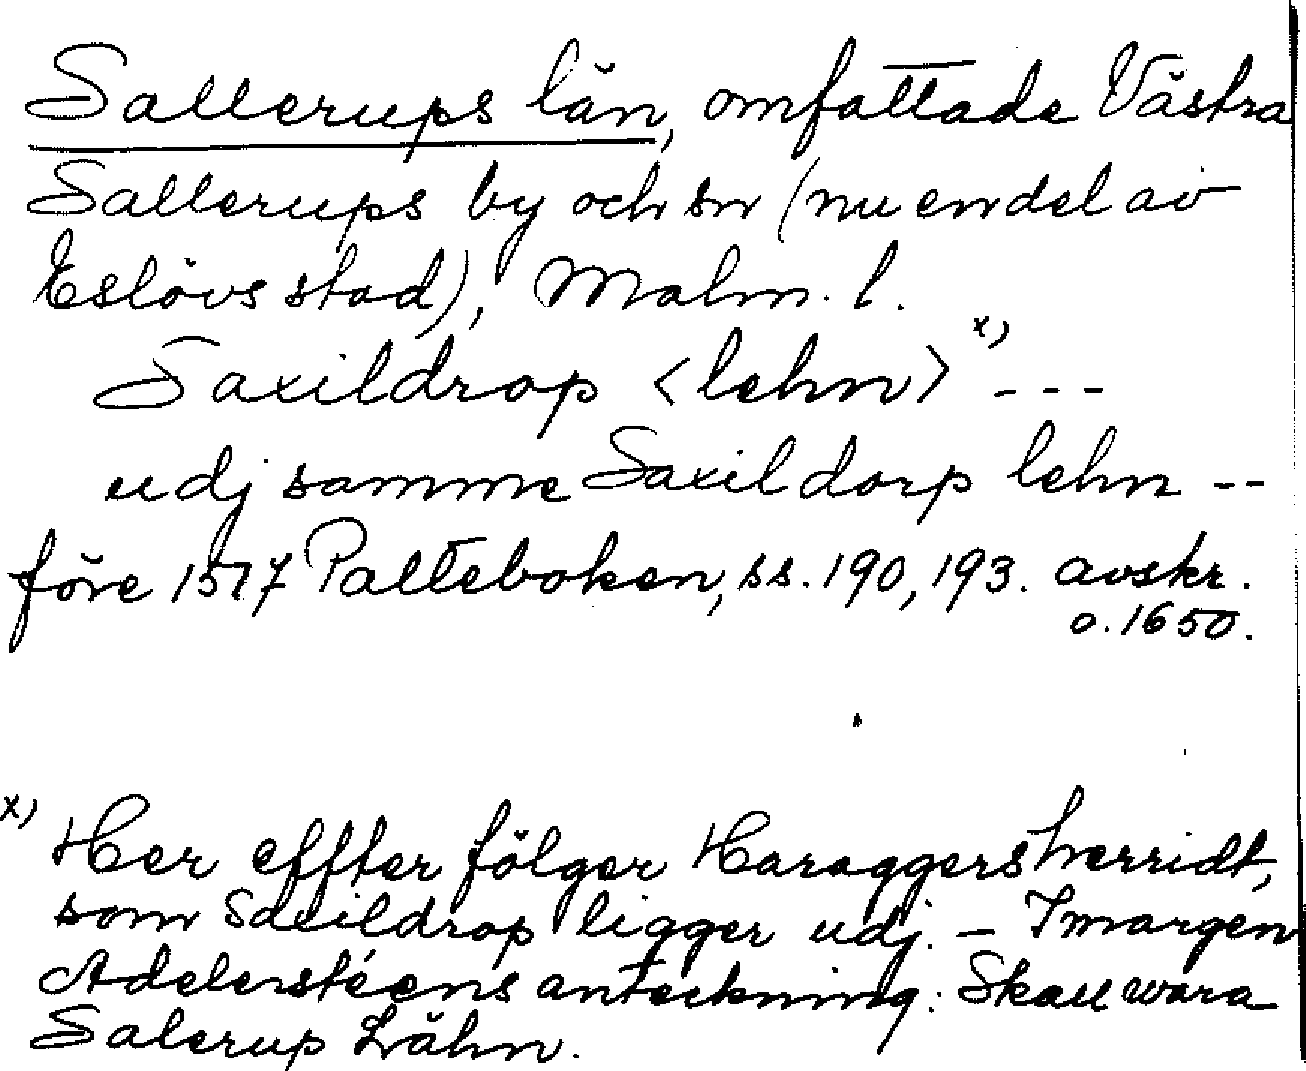 Sallerups län, omfattade Västra
Sallerups by och sn (nu en del av
Eslövs stad), Malm. l.
Saxildrop <lehn> x) - - -
udj samme Saxildorp lehn --
före 1517 Palteboken, ss. 190, 193. avskr.
o. 1650.
x) Her effter följger Haraggersherridt,
som Saxildrop ligger udj. - I margen
Adelersteens anteckning: Skall wara
Salerup Lähn.